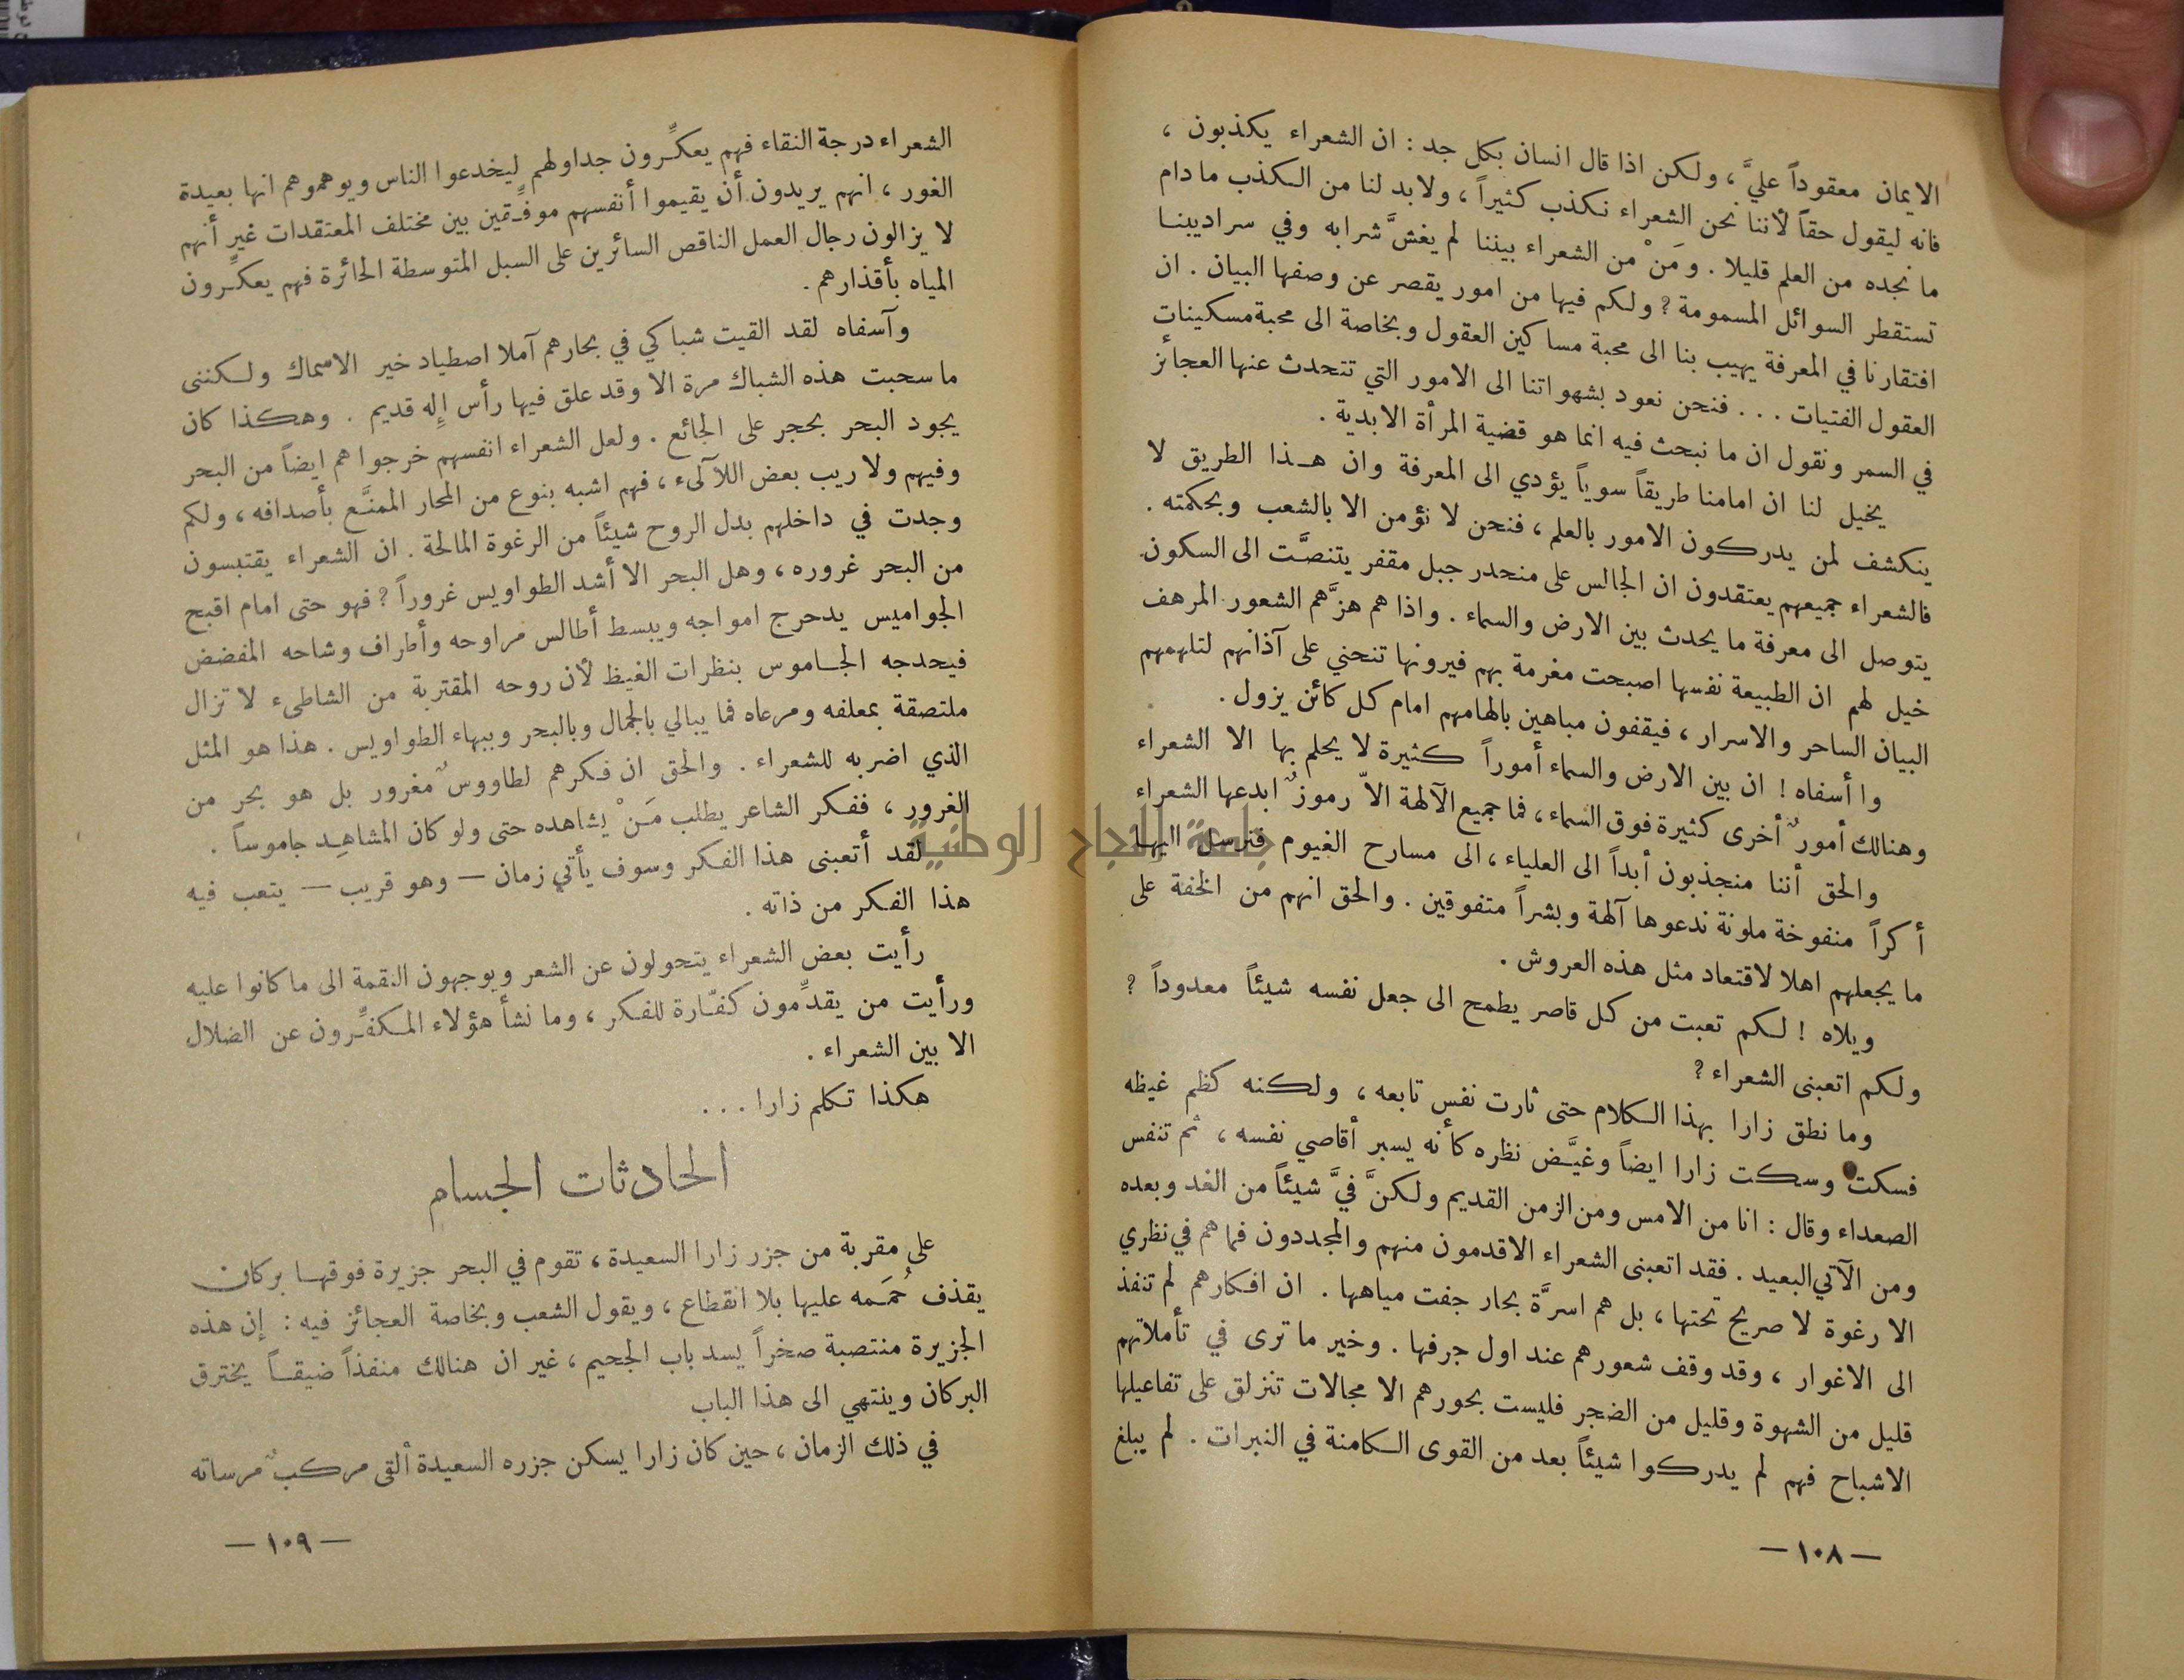 الايمان معقوداً عليَّ ، ولكن اذا قال انسان بكل جد : ان الشعراء يكذبون ،
فانه ليقول حقاً لأننا نحن الشعراء نكذب كثيراً ، ولابد لنا من الكذب ما دام
ما نجده من العلم قليلا . ومَنْ من الشعراء بيننا لم يغشَّ شرابه وفي سراديبنا
تستقطر السوائل المسمومة ? ولكم فيها من امور يقصر عن وصفها البيان . ان
افتقارنا في المعرفة يهيب بنا الى محبة مساكين العقول وبخاصة الى محبة مسكينات
العقول الفتيات . . . فنحن نعود بشهواتنا الى الامور التي تتحدث عنها العجائز
في السمر ونقول ان ما نبحث فيه انما هو قضية المرأة الابدية .
يخيل لنا ان امامنا طريقاً سوياً يؤدي الى المعرفة وان هذا الطريق لا
ينكشف لمن يدركون الامور بالعلم ، فنحن لا نؤمن الا بالشعب وبحكمته .
فالشعراء جميعهم يعتقدون ان الجالس على منحدر جبل مقفر يتنصَّت الى السكون
يتوصل الى معرفة ما يحدث بين الارض والسماء . واذا هم هزَّهم الشعور المرهف
خيل لهم ان الطبيعة نفسها اصبحت مغرمة بهم فيرونها تنحني على آذانهم لتلهمهم
البيان الساحر والاسرار ، فيقفون مباهين بالهامهم امام كل كائن يزول .
وا أسفاه ! ان بين الارض والسماء أموراً كثيرة لا يحلم بها الا الشعراء
وهنالك أمورٌ أخرى كثيرة فوق السماء ، فما جميع الآلهة الاّ رموزٌ ابدعها الشعراء
والحق أننا منجذبون أبداً الى العلياء ، الى مسارح الغيوم فنرسل اليها
أكراً منفوخة ملونة ندعوها آلهة وبشراً متفوقين . والحق انهم من الخفة على
ما يجعلهم اهلا لاقتعاد مثل هذه العروش .
ويلاه ! لكم تعبت من كل قاصر يطمح الى جعل نفسه شيئاً معدوداً ?
ولكم اتعبنى الشعراء ?
وما نطق زارا بهذا الكلام حتى ثارت نفس تابعه ، ولكنه كظم غيظه
فسكت وسكت زارا ايضاً وغيَّض نظره كأنه يسبر أقاصي نفسه ، ثم تنفس
الصعداء وقال : انا من الامس ومن الزمن القديم ولكنَّ فيَّ شيئاً من الغد وبعده
ومن الآتي البعيد . فقد اتعبنى الشعراء الاقدمون منهم والمجددون فما هم في نظري
الا رغوة لا صريح تحتها ، بل هم اسرَّة بحار جفت مياهها . ان افكارهم لم تنفذ
الى الاغوار ، وقد وقف شعورهم عند اول جرفها . وخير ما ترى في تأملاتهم
قليل من الشهوة وقليل من الضجر فليست بحورهم الا مجالات تنزلق على تفاعيلها
الاشباح فهم لم يدركوا شيئاً بعد من القوى الكامنة في النبرات . لم يبلغ
— ١٠٨ —
الشعراء درجة النقاء فهم يعكِّرون جداولهم ليخدعوا الناس ويوهموهم انها بعيدة
الغور ، انهم يريدون أن يقيموا أنفسهم موفِّقين بين مختلف المعتقدات غير أنهم
لا يزالون رجال العمل الناقص السائرين على السبل المتوسطة الحائرة فهم يعكِّرون
المياه بأقذارهم .
وآسفاه لقد القيت شباكي في بحارهم آملا اصطياد خير الاسماك ولكننى
ما سحبت هذه الشباك مرة الا وقد علق فيها رأس إله قديم . وهكذا كان
يجود البحر بحجر على الجائع . ولعل الشعراء انفسهم خرجوا هم ايضاً من البحر
وفيهم ولا ريب بعض اللآلىء ، فهم اشبه بنوع من المحار الممنَّع بأصدافه ، ولكم
وجدت في داخلهم بدل الروح شيئاً من الرغوة المالحة . ان الشعراء يقتبسون
من البحر غروره ، وهل البحر الا أشد الطواويس غروراً ? فهو حتى امام اقبح
الجواميس يدحرج امواجه ويبسط أطالس مراوحه وأطراف وشاحه المفضض
فيحدجه الجاموس بنظرات الغيظ لأن روحه المقتربة من الشاطىء لا تزال
ملتصقة بمعلفه ومرعاه فما يبالي بالجمال وبالبحر وببهاء الطواويس . هذا هو المثل
الذي اضربه للشعراء . والحق ان فكرهم لطاووسٌ مغرور بل هو بحر من
الغرور ، ففكر الشاعر يطلب مَنْ يشاهده حتى ولو كان المشاهِد جاموساً .
لقد أتعبنى هذا الفكر وسوف يأتي زمان — وهو قريب — يتعب فيه
هذا الفكر من ذاته .
رأيت بعض الشعراء يتحولون عن الشعر ويوجهون النقمة الى ما كانوا عليه
ورأيت من يقدِّمون كفّارة للفكر ، وما نشأ هؤلاء المكفِّرون عن الضلال
الا بين الشعراء .
هكذا تكلم زارا . . .
الحادثات الجسام
على مقربة من جزر زارا السعيدة ، تقوم في البحر جزيرة فوقها بركان
يقذف حُمَمه عليها بلا انقطاع ، ويقول الشعب وبخاصة العجائز فيه : إن هذه
الجزيرة منتصبة صخراً يسد باب الجحيم ، غير ان هنالك منفذاً ضيقاً يخترق
البركان وينتهي الى هذا الباب
في ذلك الزمان ، حين كان زارا يسكن جزره السعيدة ألقى مركبٌ مرساته
— ١٠٩ —
جامعة النجاح الوطنية